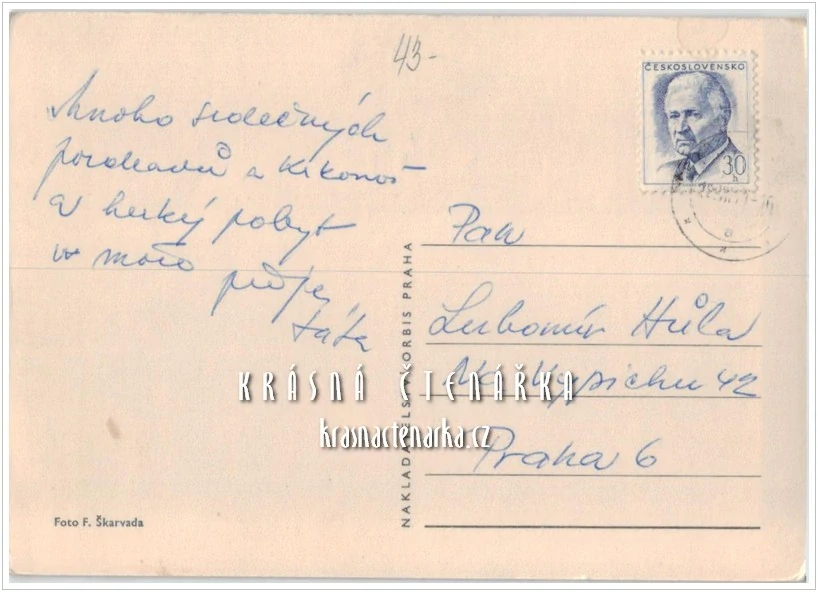 43-
ČESKOSLOVENSKO
30
h
Mnoho srdečných
pozdravů z Krkonoš
a hezký pobyt
u moře přeje
táta
Pan
Lubomír Hůla
Na Vypichu 42
Praha 6
KRÁSNÁ ČTENÁŘKA
krasnactenarka.cz
NAKLADATELSTVÍ ORBIS PRAHA
Foto F. Škarvada